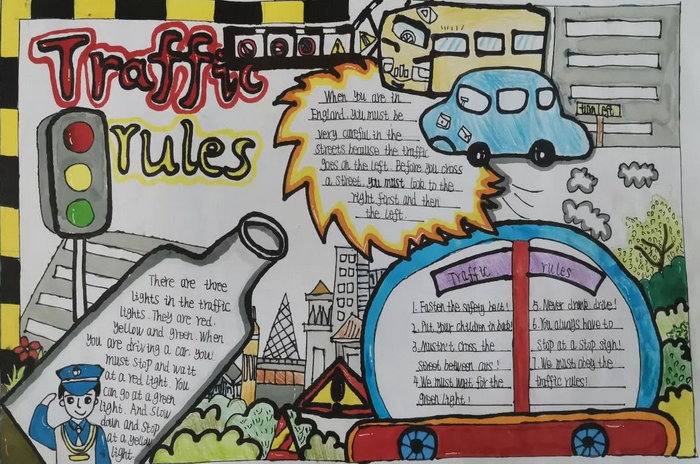 Traffic
rules
Turn left
When You are in
England, you must be
very careful in the
streets because the traffic
goes on the left. Before you cross
a street, you must look to the
right first and then
the left.
There are three
lights in the traffic
lights. They are red,
yellow and green. When
you are driving a car. You
must stop and wait
at a red light. You
can go at a green
light. And Slow
down and Stop
at a yellow
light.
Traffic rules
1. Fasten the safety belt!
2. Put your children in back!
3. Mustn't cross the
street between cars!
4. We must wait for the
green light!
5. Never drunk drive!
6. You always have to
stop at a stop sign!
7. We must obey the
traffic rules!